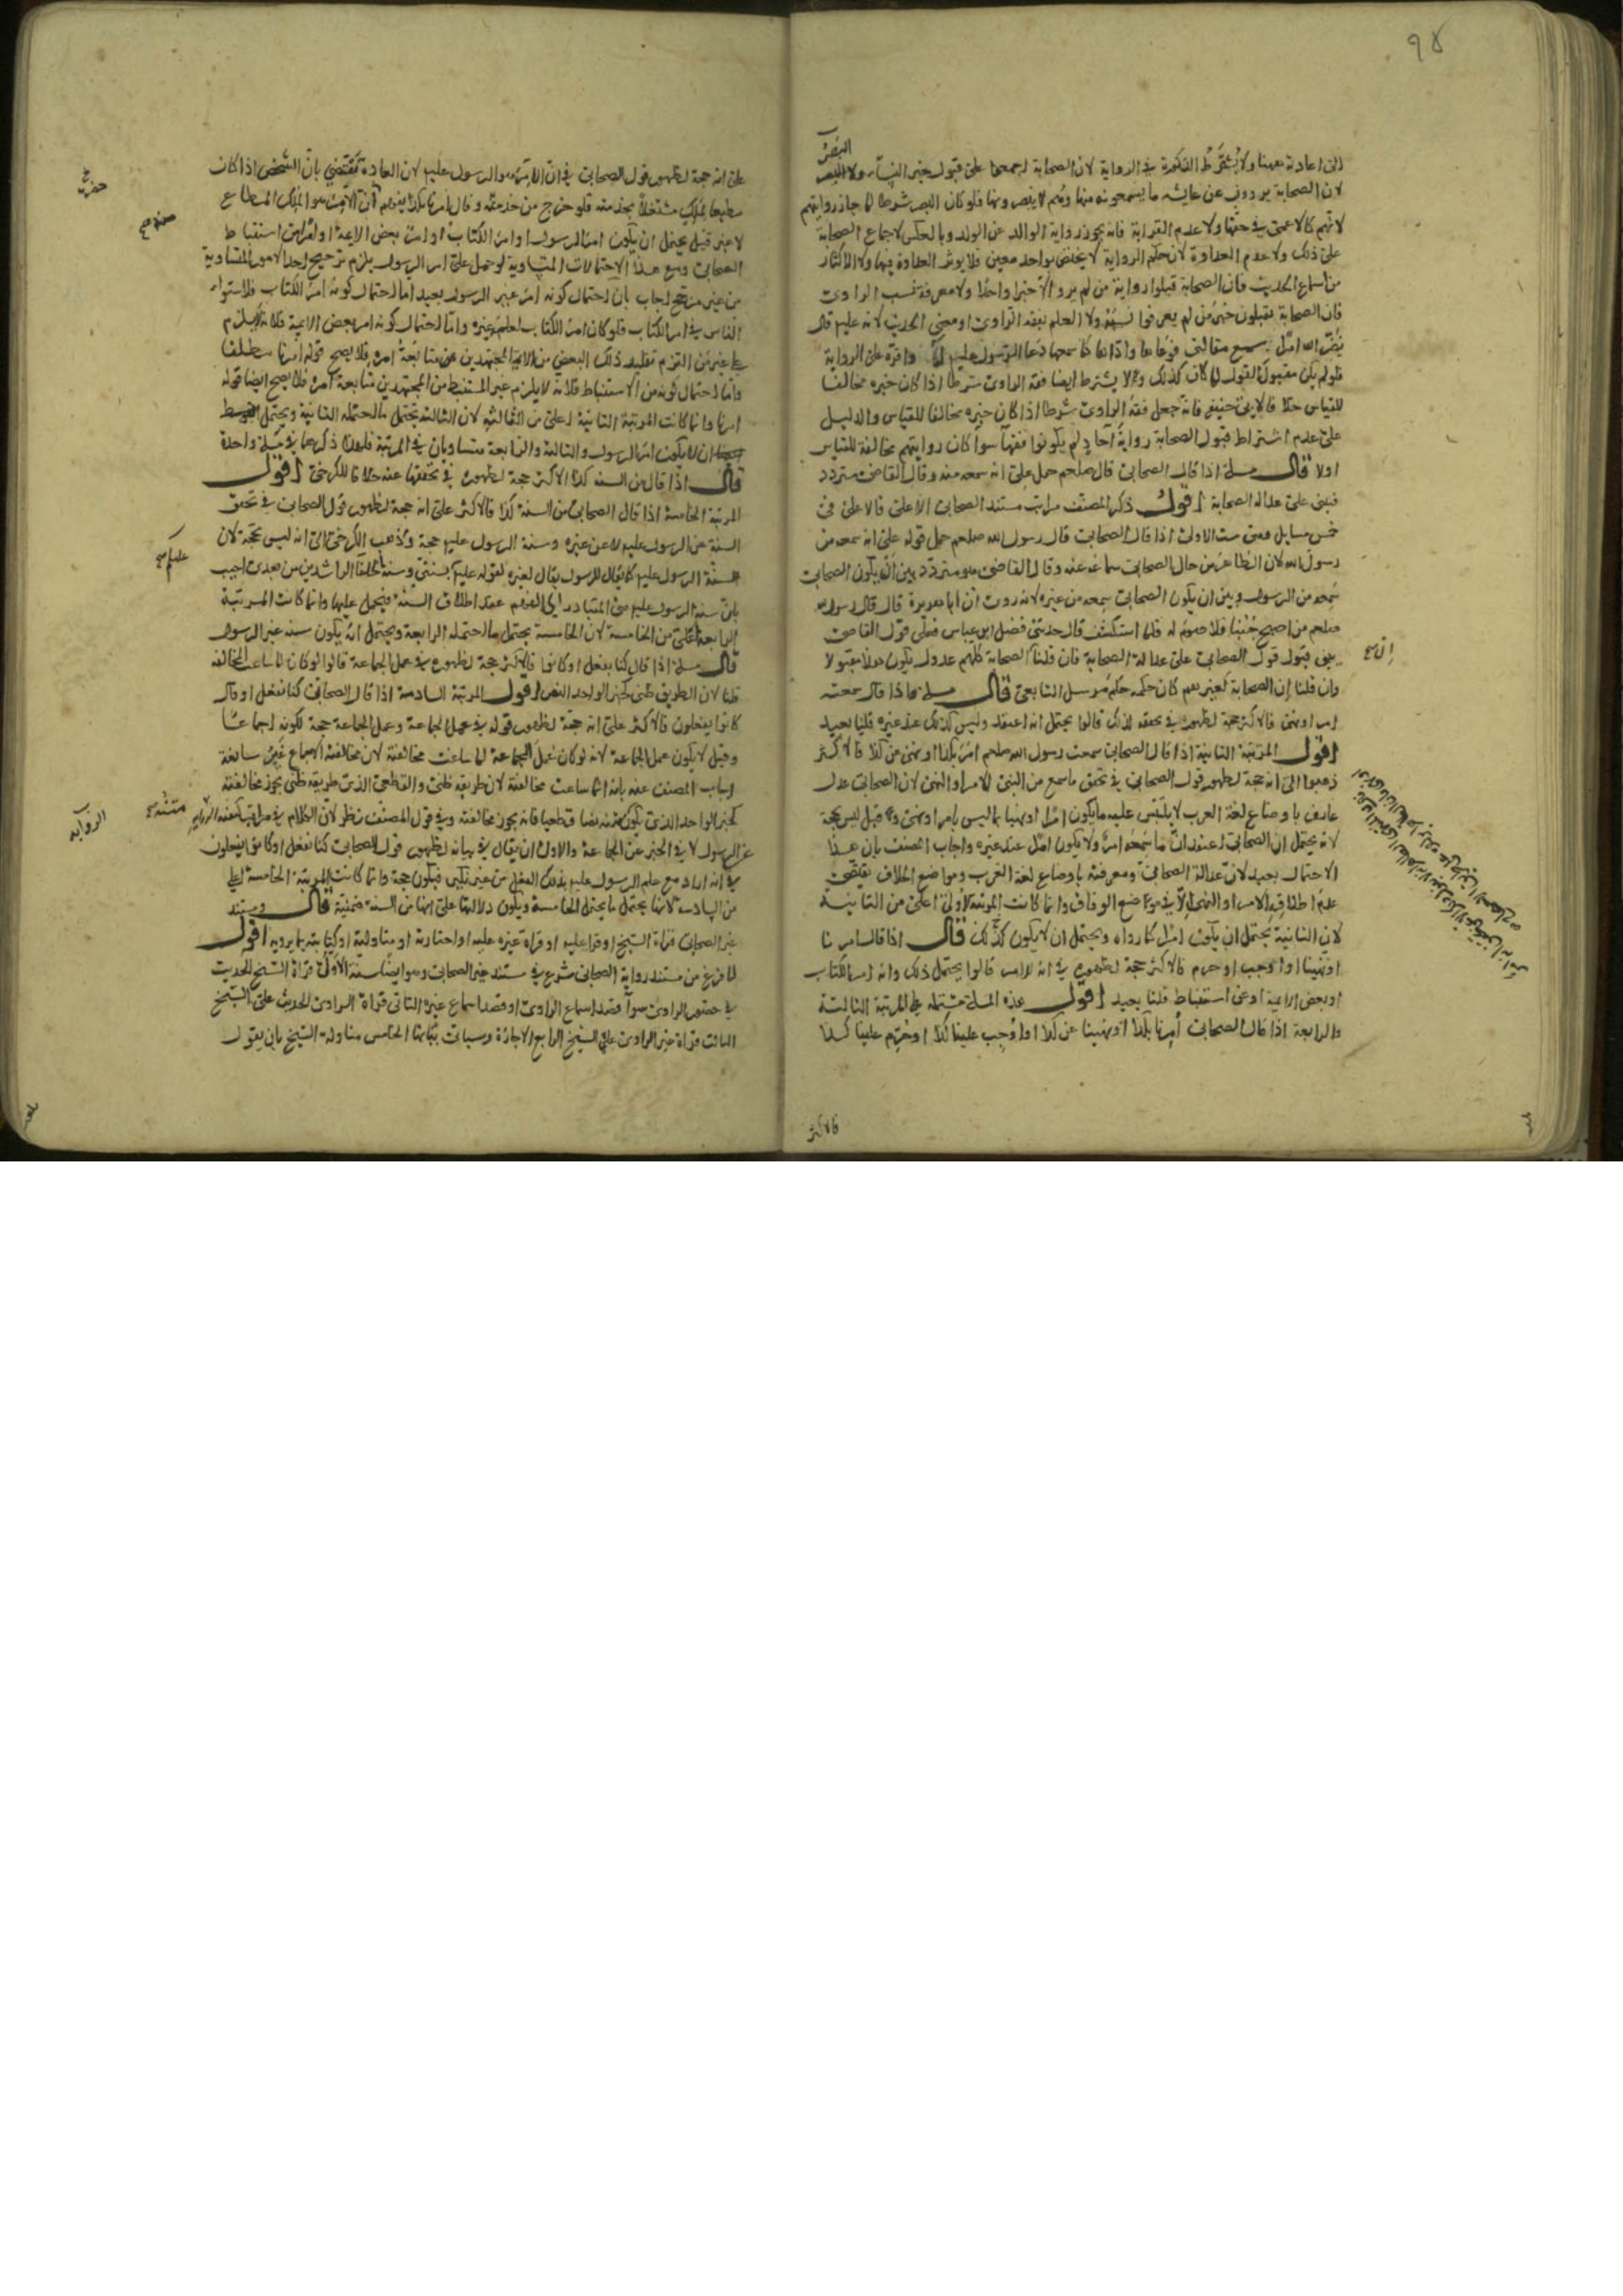 ٩٨
البصر
الى اعادته بعينها ولا يشترط الذكورة في الرواية لان الصحابة اجمعوا على قبول خبر النساء ولا البصر
لان الصحابة يروون عن عايشه ما يسمعونه منها وهم لا يبصرونها فلو كان البصر شرطا لما جاز روايتهم
لانهم كالاعمى في حقها ولا عدم القرابة فانه يجوز رواية الوالد عن الولد وبالعكس لاجماع الصحابة
على ذلك ولا عدم العداوة لان حكم الرواية لا يختص بواحد معين فلا يؤثر العداوة فيها ولا الاكثار
من سماع الحديث فان الصحابة قبلوا رواية من لم يرو الا خبرا واحدا ولا معرفة نسب الراوى
فان الصحابة يقبلون خبر من لم يعرفوا نسبه ولا العلم بفقه الراوى او معنى الحديث لانه عليم قال
نضر الله امرا سمع مقالتى فوعاها واداها كما سمعها دعا الرسول عليم له واقره على الرواية
فلو لم يكن مقبول القول لما كان كذلك ولا يشترط ايضا فقه الراوى شرطا اذا كان خبره مخالفا
للقياس خلافا لابى حنيفه فانه جعل فقه الراوى شرطا اذا كان خبره مخالفا للقياس والدليل
على عدم اشتراط قبول الصحابة رواية آحاد لم يكونوا فقها سوا كان روايتهم مخالفة للقياس
اولا قال مسلة اذا قال الصحابى قال صلعم حمل على انه سمعه منه وقال القاضى متردد
فيبنى على عدالة الصحابة اقول ذكر المصنف مراتب مستند الصحابى الاعلى فالاعلى فى
خمس مسايل فهى ست الاولى اذا قال الصحابى قال رسول الله صلعم حمل قوله على انه سمعه من
رسول الله لان الظاهر من حال الصحابى سماعه عنه وقال القاضى هو متردد بين ان يكون الصحابى
سمعه من الرسول وبين ان يكون الصحابى سمعه من غيره لانه روى ان ابا هريرة قال قال رسول الله
صلعم من اصبح جنبا فلا صوم له فلما استكشف قال حدثنى فضل ابن عباس فعلى قول القاضى
يبنى قبول قول الصحابى على عدالة الصحابة فان قلنا الصحابة كلهم عدول يكون هذا مقبولا
وان قلنا ان الصحابة كغيرهم كان حكمه حكم مرسل التابعى قال مسلة فاذا قال سمعته
امر او نهى فالاكثر حجة لظهوره في تحققه لذلك قالوا يحتمل انه اعتقد وليس كذلك عند غيره قلنا بعيد
اقول المرتبة الثانية اذا قال الصحابى سمعت رسول الله صلعم امر بكذا او نهى عن كذا فالاكثر
ذهبوا الى انه حجة لظهور قول الصحابى في تحقق ما سمع من النبى الامر او النهى لان الصحابى عدل
عارف باوضاع لغة العرب لا يلتبس عليه ما يكون امرا او نهيا بما ليس بامر او نهى وقيل ليس بحجة
لانه يحتمل ان الصحابى اعتقد ان ما سمعه امر ولا يكون امرا عند غيره واجاب المصنف بان هذا
الاحتمال بعيد لان عدالة الصحابى ومعرفته باوضاع لغة العرب ومواضع الخلاف يقتضى
عدم اطلاقه الامر او النهى الا في مواضع الوفاق وانما كانت المرتبة الاولى اعلى من الثانية
لان الثانية يحتمل ان يكون امرا كما رواه ويحتمل ان لا يكون كذلك قال اذا قال امرنا
او نهينا او اوجب او حرم فالاكثر حجة لظهوره في انه الامر قالوا يحتمل ذلك وانه امر الكتاب
او بعض الايمة او عن استنباط قلنا بعيد اقول هذه المسلة مشتملة على المرتبة الثالثة
والرابعة اذا قال الصحابى امرنا بكذا او نهينا عن كذا او اوجب علينا كذا او حرم علينا كذا
فالاكثر
ان صح
على انه حجة لظهور قول الصحابى في ان الآمر هو الرسول عليم لان العادة تقتضى بان الشخص اذا كان
مطيعا لملك مشتغلا بخدمته فلو خرج من خدمته وقال امرنا بكذا يفهم ان الآمر هو الملك المطاع
لا غير قيل يحتمل ان يكون امر الرسول او امر الكتاب او امر بعض الايمة او امرا عن استنباط
الصحابى ومع هذه الاحتمالات المتساوية لو حمل على امر الرسول يلزم ترجيح احد الامور المتساوية
من غير مرجح اجاب بان احتمال كونه امر غير الرسول بعيد اما احتمال كونه امر الكتاب فلاستواء
الناس في امر الكتاب فلو كان امر الكتاب لعلم غيره واما احتمال كونه امر بعض الايمة فلانه لا يلزم
على غير من التزم تقليد ذلك البعض من الايمة المجتهدين عن متابعة امره فلا يصح قوله امرنا مطلقا
واما احتمال كونه من الاستنباط فلانه لا يلزم غير المستنبط من المجتهدين متابعة امره فلا يصح ايضا قوله
امرنا وانما كانت المرتبة الثانية اعلى من الثالثة لان الثالثة تحتمل ما احتمله الثانية ويحتمل
ان لا يكون امر الرسول والثالثة والرابعة متساويان في المرتبة فلهذا ذكرهما في مسلة واحدة
قال اذا قال من السنه كذا الاكثر حجة لظهوره في تحققها عنه خلافا للكرخى اقول
المرتبة الخامسة اذا قال الصحابى من السنة كذا فالاكثر على انه حجة لظهور قول الصحابى في تحقق
السنة عن الرسول عليم لا عن غيره وسنة الرسول عليم حجة وذهب الكرخى الى انه ليس بحجة لان
السنة الرسول عليم كما يقال للرسول يقال لغيره لقوله عليم بسنتى وسنة الخلفا الراشدين من بعدى اجيب
بان سنة الرسول عليم هى المتبادر الى الفهم عند اطلاق السنة فيحمل عليها وانما كانت المرتبة
الرابعة اعلى من الخامسة لان الخامسة يحتمل ما احتمله الرابعة ويحتمل ان يكون سنة غير الرسول
قال مسلة اذا قال كنا نفعل او كانوا فالاكثر حجة لظهوره في عمل الجماعة قالوا لو كان لما ساغت المخالفة
قلنا لان الطريق ظنى كخبر الواحد النص اقول المرتبة السادسة اذا قال الصحابى كنا نفعل او قال
كانوا يفعلون فالاكثر على انه حجة لظهور قوله في عمل الجماعة وعمل الجماعة حجة لكونه اجماعا
وقيل لا يكون عمل الجماعة لانه لو كان عمل الجماعة لما ساغت مخالفته لان مخالفة الاجماع غير سائغة
اجاب المصنف عنه بانه انما ساغت مخالفته لان طريقه ظنى والقطعى الذى طريقه ظنى يجوز مخالفته
كخبر الواحد الذى يكون متنه نصا قطعيا فانه يجوز مخالفته وفي قول المصنف نظر لان الكلام في
عن الرسول لا في الخبر عن الجماعة والاولى ان يقال في بيانه لظهور قول الصحابى كنا نفعل او كانوا يفعلون
في انه اراد مع علم الرسول عليم بذلك الفعل من غير نكير فيكون حجة وانما كانت المرتبة الخامسة اعلى
من السادسة لانها يحتمل ما يحتمل الخامسة ويكون دلالتها على انها من السنة ضمنية قال ومستند
غير الصحابى قراءة الشيخ او قراءته عليه او قراءة غيره عليه او اجازته او مناولته او كتابته بما يرويه اقول
لما فرغ من مستند رواية الصحابى شرع في مستند غير الصحابى وهو ايضا ستة الاول قراءة الشيخ الحديث
في حضور الراوى سوآ قصد اسماع الراوى او قصد اسماع غيره الثانى قراءة الراوى الحديث على الشيخ
الثالث قراءة غير الراوى على الشيخ الرابع الاجازة وسياتى بيانها الخامس مناولة الشيخ بان يقول
متنه صح
الرواية